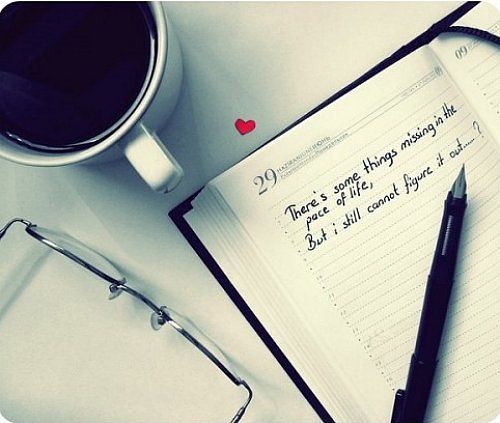 29
There's some things missing in the
pace of life,
But i still cannot figure it out.....?
09